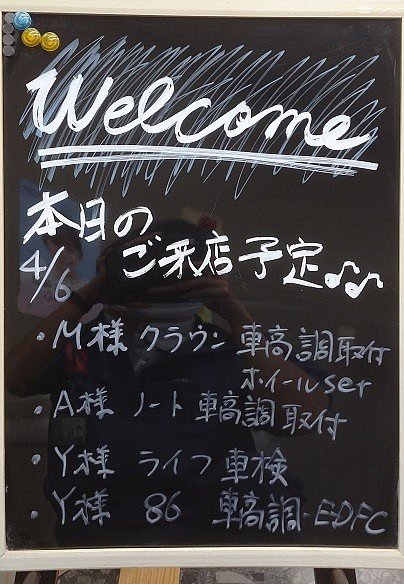 Welcome
本日の
4/6 ご来店予定♪♫
・M様 クラウン 車高調取付
ホイールset
・A様 ノート 車高調取付
・Y様 ライフ 車検
・Y様 86 車高調・EDFC